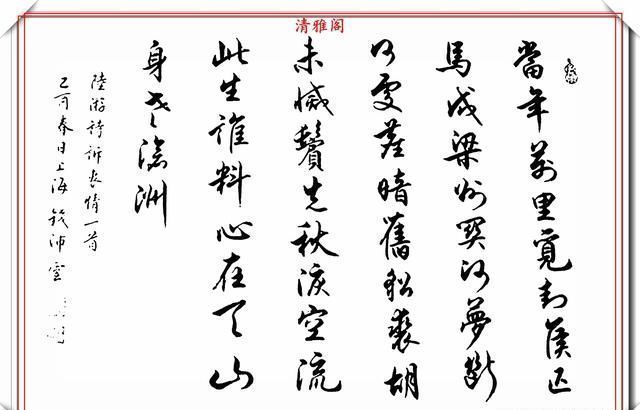 清雅阁
當年萬里覓封侯匹
馬戍梁州關河夢斷
何處塵暗舊貂裘胡
未滅鬢先秋淚空流
此生誰料心在天山
身老滄洲
陸游詩訴衷情一首
春日上海錢沛雲